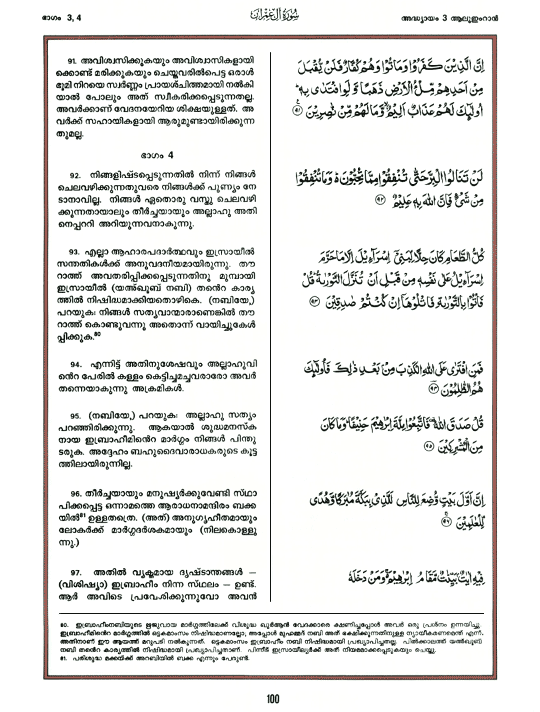 ഭാഗം 3, 4
سُورَةُ آلِ عِمْرَان
അദ്ധ്യായം 3 ആലുഇംറാൻ
91. അവിശ്വസിക്കുകയും അവിശ്വാസികളായി
ക്കൊണ്ട് മരിക്കുകയും ചെയ്തവരിൽപെട്ട ഒരാൾ
ഭൂമി നിറയെ സ്വർണ്ണം പ്രായശ്ചിത്തമായി നൽകി
യാൽ പോലും അത് സ്വീകരിക്കപ്പെടുന്നതല്ല.
അവർക്കാണ് വേദനയേറിയ ശിക്ഷയുള്ളത്. അ
വർക്ക് സഹായികളായി ആരുമുണ്ടായിരിക്കുന്ന
തുമല്ല.
ഭാഗം 4
92. നിങ്ങളിഷ്ടപ്പെടുന്നതിൽ നിന്ന് നിങ്ങൾ
ചെലവഴിക്കുന്നതുവരെ നിങ്ങൾക്ക് പുണ്യം നേ
ടാനാവില്ല. നിങ്ങൾ ഏതൊരു വസ്തു ചെലവഴി
ക്കുന്നതായാലും തീർച്ചയായും അല്ലാഹു അതി
നെപ്പററി അറിയുന്നവനാകുന്നു.
93. എല്ലാ ആഹാരപദാർത്ഥവും ഇസ്രായീൽ
സന്തതികൾക്ക് അനുവദനീയമായിരുന്നു. തൗ
റാത്ത് അവതരിപ്പിക്കപ്പെടുന്നതിനു മുമ്പായി
ഇസ്രായീൽ (യഅ്ഖൂബ് നബി) തൻെറ കാര്യ
ത്തിൽ നിഷിദ്ധമാക്കിയതൊഴികെ. (നബിയേ,)
പറയുക: നിങ്ങൾ സത്യവാന്മാരാണെങ്കിൽ തൗ
റാത്ത് കൊണ്ടുവന്നു അതൊന്ന് വായിച്ചുകേൾ
പ്പിക്കുക.80
94. എന്നിട്ട് അതിനുശേഷവും അല്ലാഹുവി
ൻെറ പേരിൽ കള്ളം കെട്ടിച്ചമച്ചവരാരോ അവർ
തന്നെയാകുന്നു അക്രമികൾ.
95. (നബിയേ,) പറയുക: അല്ലാഹു സത്യം
പറഞ്ഞിരിക്കുന്നു. ആകയാൽ ശുദ്ധമനസ്ക
നായ ഇബ്രാഹീമിൻെറ മാർഗ്ഗം നിങ്ങൾ പിന്തു
ടരുക. അദ്ദേഹം ബഹുദൈവാരാധകരുടെ കൂട്ട
ത്തിലായിരുന്നില്ല.
96. തീർച്ചയായും മനുഷ്യർക്കുവേണ്ടി സ്ഥാ
പിക്കപ്പെട്ട ഒന്നാമത്തെ ആരാധനാമന്ദിരം ബക്ക
യിൽ81 ഉള്ളതത്രെ. (അത്) അനുഗൃഹീതമായും
ലോകർക്ക് മാർഗ്ഗദർശകമായും (നിലകൊള്ളു
ന്നു.)
97. അതിൽ വ്യക്തമായ ദൃഷ്ടാന്തങ്ങൾ —
(വിശിഷ്യാ) ഇബ്രാഹീം നിന്ന സ്ഥലം — ഉണ്ട്.
ആർ അവിടെ പ്രവേശിക്കുന്നുവോ അവൻ
اِنَّ الَّذِيْنَ كَفَرُوْا وَمَاتُوْا وَهُمْ كُفَّارٌ فَلَنْ يُّقْبَلَ
مِنْ اَحَدِهِمْ مِّلْءُ الْاَرْضِ ذَهَبًا وَّلَوِ افْتَدٰى بِهٖ
اُولٰٓئِكَ لَهُمْ عَذَابٌ اَلِيْمٌ وَّمَا لَهُمْ مِّنْ نّٰصِرِيْنَ ۹۱
لَنْ تَنَالُوا الْبِرَّ حَتّٰى تُنْفِقُوْا مِمَّا تُحِبُّوْنَ ە وَمَا تُنْفِقُوْا
مِنْ شَيْءٍ فَاِنَّ اللّٰهَ بِهٖ عَلِيْمٌ ۹۲
كُلُّ الطَّعَامِ كَانَ حِلًّا لِّبَنِيْٓ اِسْرَآءِيْلَ اِلَّا مَا حَرَّمَ
اِسْرَآءِيْلُ عَلٰى نَفْسِهٖ مِنْ قَبْلِ اَنْ تُنَزَّلَ التَّوْرٰىةُ قُلْ
فَاْتُوْا بِالتَّوْرٰىةِ فَاتْلُوْهَآ اِنْ كُنْتُمْ صٰدِقِيْنَ ۹۳
فَمَنِ افْتَرٰى عَلَى اللّٰهِ الْكَذِبَ مِنْ بَعْدِ ذٰلِكَ فَاُولٰٓئِكَ
هُمُ الظّٰلِمُوْنَ ۹۴
قُلْ صَدَقَ اللّٰهُ فَاتَّبِعُوْا مِلَّةَ اِبْرٰهِيْمَ حَنِيْفًا وَمَا كَانَ
مِنَ الْمُشْرِكِيْنَ ۹۵
اِنَّ اَوَّلَ بَيْتٍ وُّضِعَ لِلنَّاسِ لَلَّذِيْ بِبَكَّةَ مُبٰرَكًا وَّهُدًى
لِّلْعٰلَمِيْنَ ۹۶
فِيْهِ اٰيٰتٌ بَيِّنٰتٌ مَّقَامُ اِبْرٰهِيْمَ وَمَنْ دَخَلَهٗ
80. ഇബ്രാഹീംനബിയുടെ ഋജുവായ മാർഗ്ഗത്തിലേക്ക് വിശുദ്ധ ഖുർആൻ വേദക്കാരെ ക്ഷണിച്ചപ്പോൾ അവർ ഒരു പ്രശ്നം ഉന്നയിച്ചു.
ഇബ്രാഹീമിൻെറ മാർഗ്ഗത്തിൽ ഒട്ടകമാംസം നിഷിദ്ധമാണല്ലോ, അപ്പോൾ മുഹമ്മദ് നബി അത് ഭക്ഷിക്കുന്നതിനുള്ള ന്യായീകരണമെന്ത് എന്ന്.
അതിനാണ് ഈ ആയത്ത് മറുപടി നൽകുന്നത്. ഒട്ടകമാംസം ഇബ്രാഹീം നബി നിഷിദ്ധമായി പ്രഖ്യാപിച്ചതല്ല. പിൽക്കാലത്ത് യഅ്ഖൂബ്
നബി തൻെറ കാര്യത്തിൽ നിഷിദ്ധമായി പ്രഖ്യാപിച്ചതാണ്. പിന്നീട് ഇസ്രായീല്യർക്ക് അത് നിയമമാക്കപ്പെടുകയും ചെയ്തു.
81. പരിശുദ്ധ മക്കയ്ക്ക് അറബിയിൽ ബക്ക എന്നും പേരുണ്ട്.
100